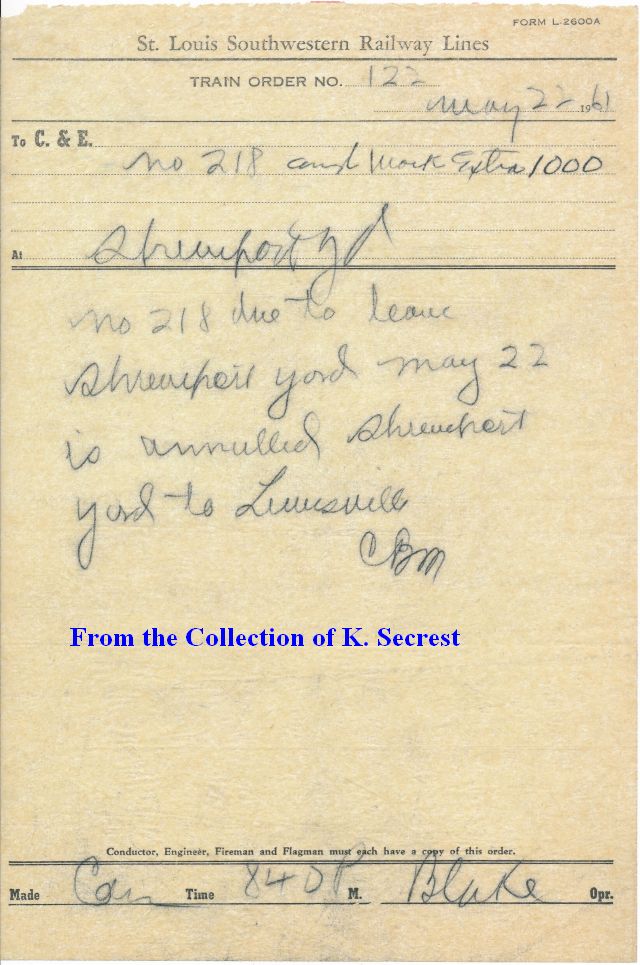 FORM L-2600A
St. Louis Southwestern Railway Lines
TRAIN ORDER NO. 122
May 22 1961
To C. & E.
No 218 and Work Extra 1000
At Shreveport yd
No 218 due to leave
Shreveport yard May 22
is annulled Shreveport
yard to Lewisville
CBM
From the Collection of K. Secrest
Conductor, Engineer, Fireman and Flagman must each have a copy of this order.
Made Com Time 840 P M. Blake Opr.